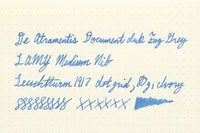 De Atramentis Document Ink Fog Grey
LAMY Medium Nib
Leuchtturm 1917 dot grid, Ivory